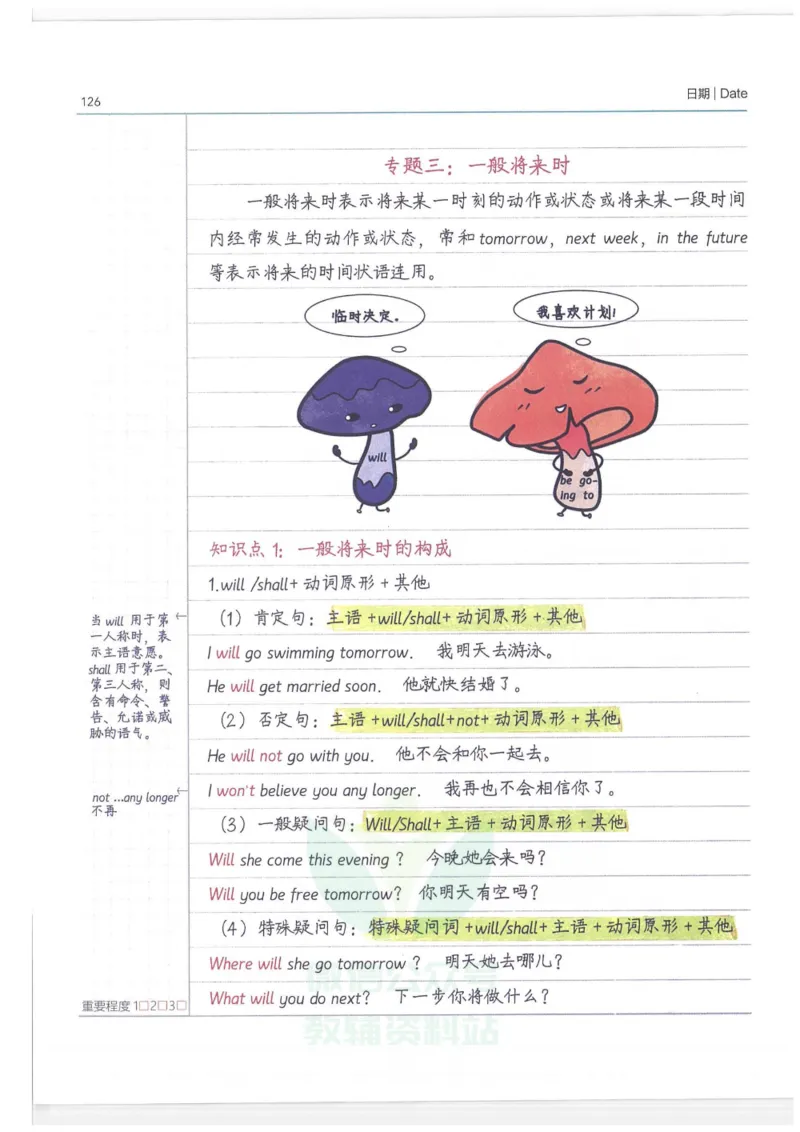 126
日期 | Date
专题三：一般将来时
一般将来时表示将来某一时刻的动作或状态或将来某一段时间
内经常发生的动作或状态，常和 tomorrow，next week，in the future
等表示将来的时间状语连用。
临时决定.
我喜欢计划!
will
be go-
ing to
知识点 1：一般将来时的构成
1.will /shall+ 动词原形 + 其他
（1）肯定句：主语 +will/shall+ 动词原形 + 其他
I will go swimming tomorrow. 我明天去游泳。
He will get married soon. 他就快结婚了。
（2）否定句：主语 +will/shall+not+ 动词原形 + 其他
He will not go with you. 他不会和你一起去。
I won't believe you any longer. 我再也不会相信你了。
（3）一般疑问句：Will/Shall+ 主语 + 动词原形 + 其他
Will she come this evening ? 今晚她会来吗？
Will you be free tomorrow? 你明天有空吗？
（4）特殊疑问句：特殊疑问词 +will/shall+ 主语 + 动词原形 + 其他
Where will she go tomorrow ? 明天她去哪儿？
What will you do next? 下一步你将做什么？
当 will 用于第
一人称时，表
示主语意愿。
shall 用于第二、
第三人称，则
含有命令、警
告、允诺或威
胁的语气。
not ...any longer
不再
重要程度 1□2□3□
微信公众号
教辅资料站